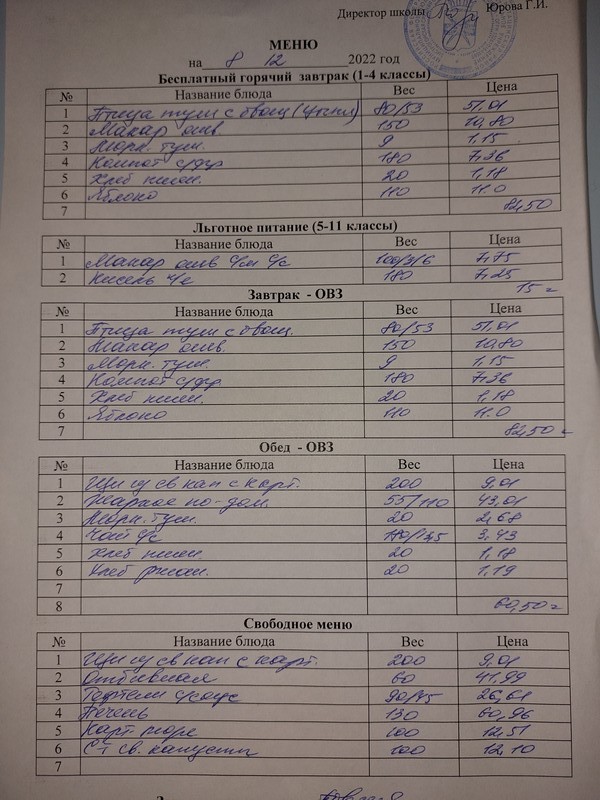 Директор школы Юрова Г.И.
МЕНЮ
на 8 12 2022 год
Бесплатный горячий завтрак (1-4 классы)
№ Название блюда Вес Цена
1 Птица туш с овощ ( 80/53 51,01
2 Макар отв 150 10,80
3 Морк. туш. 9 1,15
4 Компот с/фр 180 7,36
5 Хлеб пшен. 20 1,18
6 Яблоко 110 11.0
7 82,50
Льготное питание (5-11 классы)
№ Название блюда Вес Цена
1 Макар отв с/м с/с 100/3/6 7,75
2 Кисель 180 7,25
15
Завтрак - ОВЗ
№ Название блюда Вес Цена
1 Птица туш с овощ. 80/53 51,01
2 Макар отв. 150 10,80
3 Морк. туш. 9 1,15
4 Компот с/фр 180 7,36
5 Хлеб пшен. 20 1,18
6 Яблоко 110 11.0
7 82,50
Обед - ОВЗ
№ Название блюда Вес Цена
1 Щи из св кап с карт. 200 9,01
2 Жаркое по-дом. 55/110 43,01
3 Морк. туш. 20 2,68
4 Чай с/с 3,43
5 Хлеб пшен. 20 1,18
6 Хлеб ржан. 20 1,19
7
8 60,50
Свободное меню
№ Название блюда Вес Цена
1 Щи из св кап с карт. 200 9,01
2 Отбивная 60 41,99
3 Тефтели с/соус 90/45 26,61
4 Печень 130 60,96
5 Карт пюре 100 12,51
6 Ст св. капусты 100 12,10
7